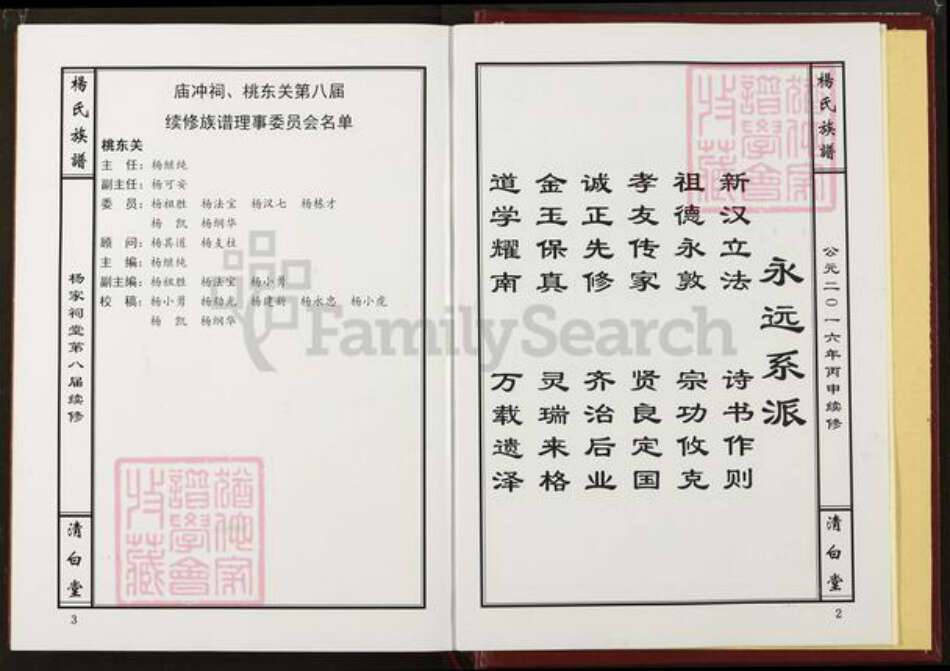 楊氏族譜
公元二〇一六年丙申续修
清白堂
2
永远系派
新汉立法 诗书作则
祖德永敦 宗功攸克
孝友传家 贤良定国
诚正先修 齐治后业
金玉保真 灵瑞来格
道学耀南 万载遗泽
楊氏族譜
杨家祠堂第八届续修
清白堂
3
庙冲祠、桃东关第八届
续修族谱理事委员会名单
桃东关
主 任：杨继纯
副主任：杨可安
委 员：杨祖胜 杨法宝 杨汉七 杨栋才
杨 凯 杨纲华
顾 问：杨其道 杨友柱
主 编：杨继纯
副主编：杨祖胜 杨法宝 杨小勇
校 稿：杨小勇 杨幼光 杨建新 杨永忠 杨小虎
杨 凯 杨纲华
FamilySearch